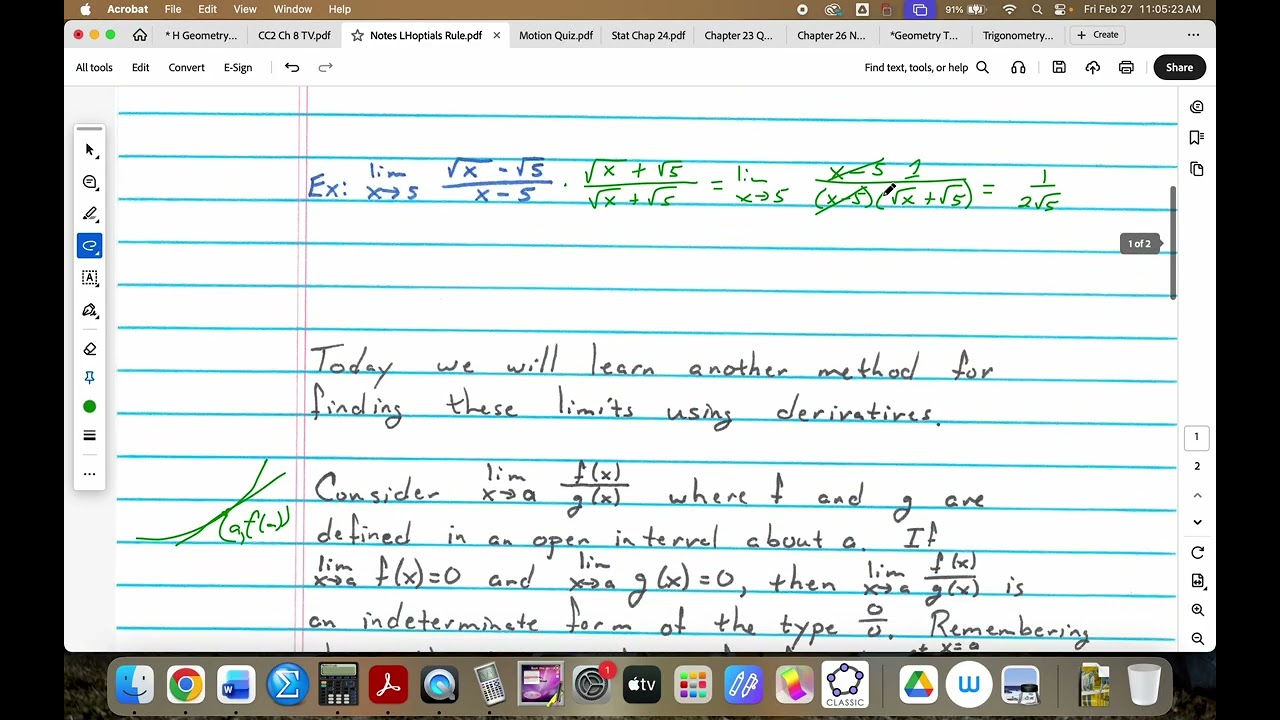 Acrobat File Edit View Window Help 91% Fri Feb 27 11:05:23 AM
* H Geometry... CC2 Ch 8 TV.pdf Notes LHoptials Rule.pdf × Motion Quiz.pdf Stat Chap 24.pdf Chapter 23 Q... Chapter 26 N... *Geometry T... Trigonometry... + Create ...
All tools Edit Convert E-Sign Find text, tools, or help Share
Ex: lim x→5 (√x - √5)/(x - 5) · (√x + √5)/(√x + √5) = lim x→5 (x - 5) 1/((x - 5)(√x + √5)) = 1/(2√5)
1 of 2
Today we will learn another method for
finding these limits using derivatives.
1
2
(a, f(a))
Consider lim x→a f(x)/g(x) where f and g are
defined in an open interval about a. If
lim x→a f(x)=0 and lim x→a g(x)=0, then lim x→a f(x)/g(x) is
an indeterminate form of the type 0/0. Remembering
x=a
1
tv
W
CLASSIC
W